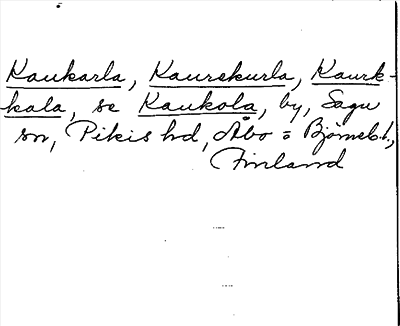 Kaukarla, Kaurekurla, Kaurk-
kala, se Kaukola, by, Sagu
sn, Pikis hd, Åbo = Björneb.l.,
Finland